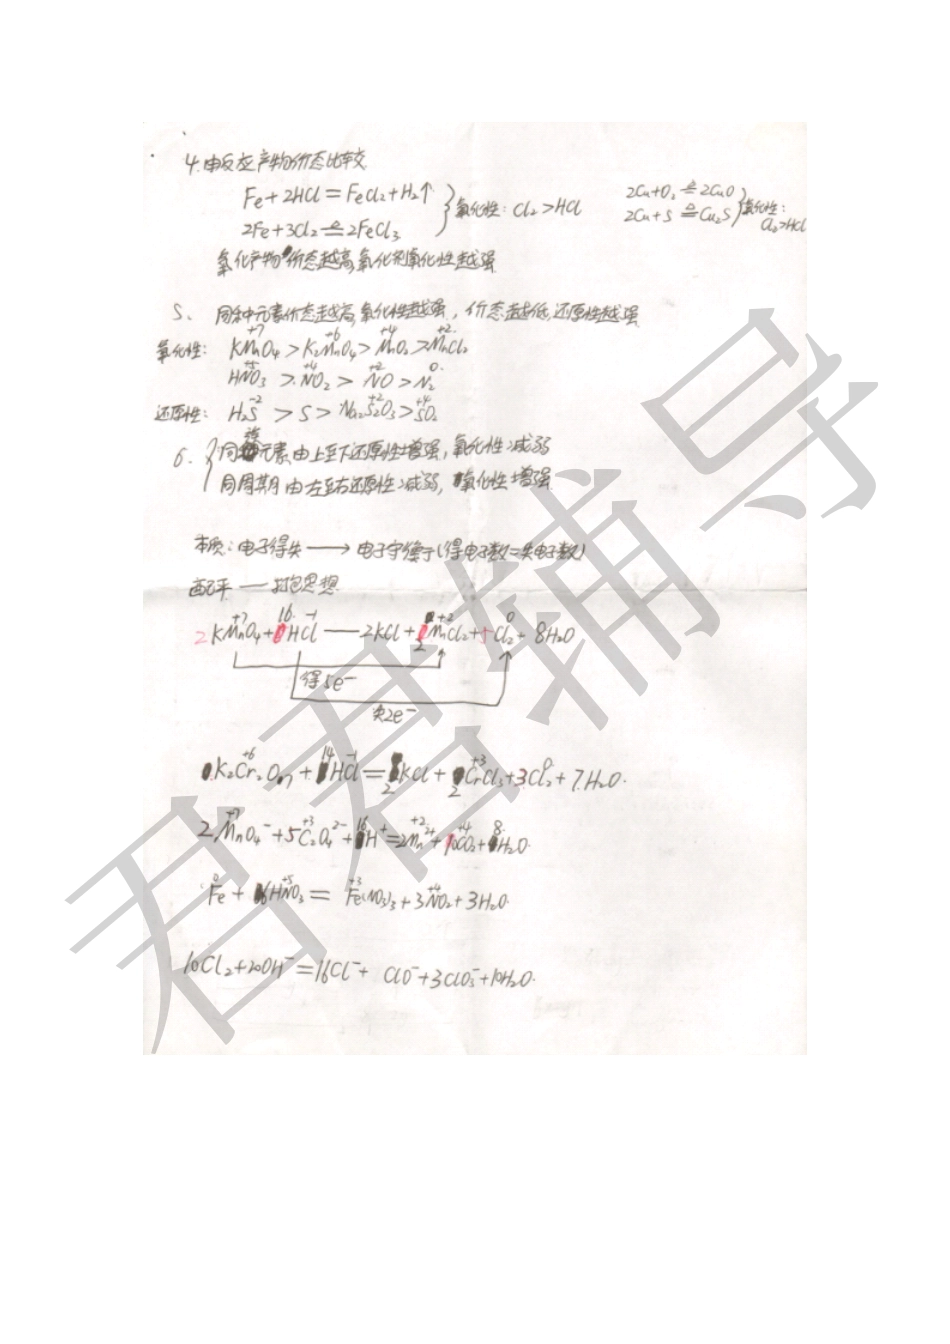 4.由反应产物价态比较
Fe+2HCl=FeCl₂+H₂↑
2Fe+3Cl₂≜2FeCl₃
氧化性:Cl₂>HCl
2Cu+O₂≜2CuO
2Cu+S≜Cu₂S
氧化性:
Cl₂>HCl
氧化产物价态越高,氧化剂氧化性越强
5、同种元素价态越高,氧化性越强,价态越低,还原性越强
+7 +6 +4 +2
氧化性: KMnO₄>K₂MnO₄>MnO₂>MnCl₂
+5 +4 +2 0
HNO₃>NO₂>NO>N₂
-2 +2 +4
还原性: H₂S>S>Na₂S₂O₃>SO₂
6. 同族元素由上至下还原性增强,氧化性减弱
同周期由左至右还原性减弱,氧化性增强
本质:电子得失⟶电子守衡于(得电子数=失电子数)
配平——打包思想
+7 16 -1 +2 0
2KMnO₄+HCl—2KCl+2MnCl₂+5Cl₂+8H₂O
得5e⁻
失2e⁻
+6 14 -1 +3 0
K₂Cr₂O₇+HCl=2KCl+2CrCl₃+3Cl₂+7H₂O.
+7 +3 16 +2 +4 8
2MnO₄⁻+5C₂O₄²⁻+H⁺=2Mn²⁺+10CO₂+H₂O.
0 +5 +3 +4
Fe+6HNO₃=Fe(NO₃)₃+3NO₂+3H₂O.
10Cl₂+20OH⁻=16Cl⁻+ClO⁻+3ClO₃⁻+10H₂O.
君君辅导